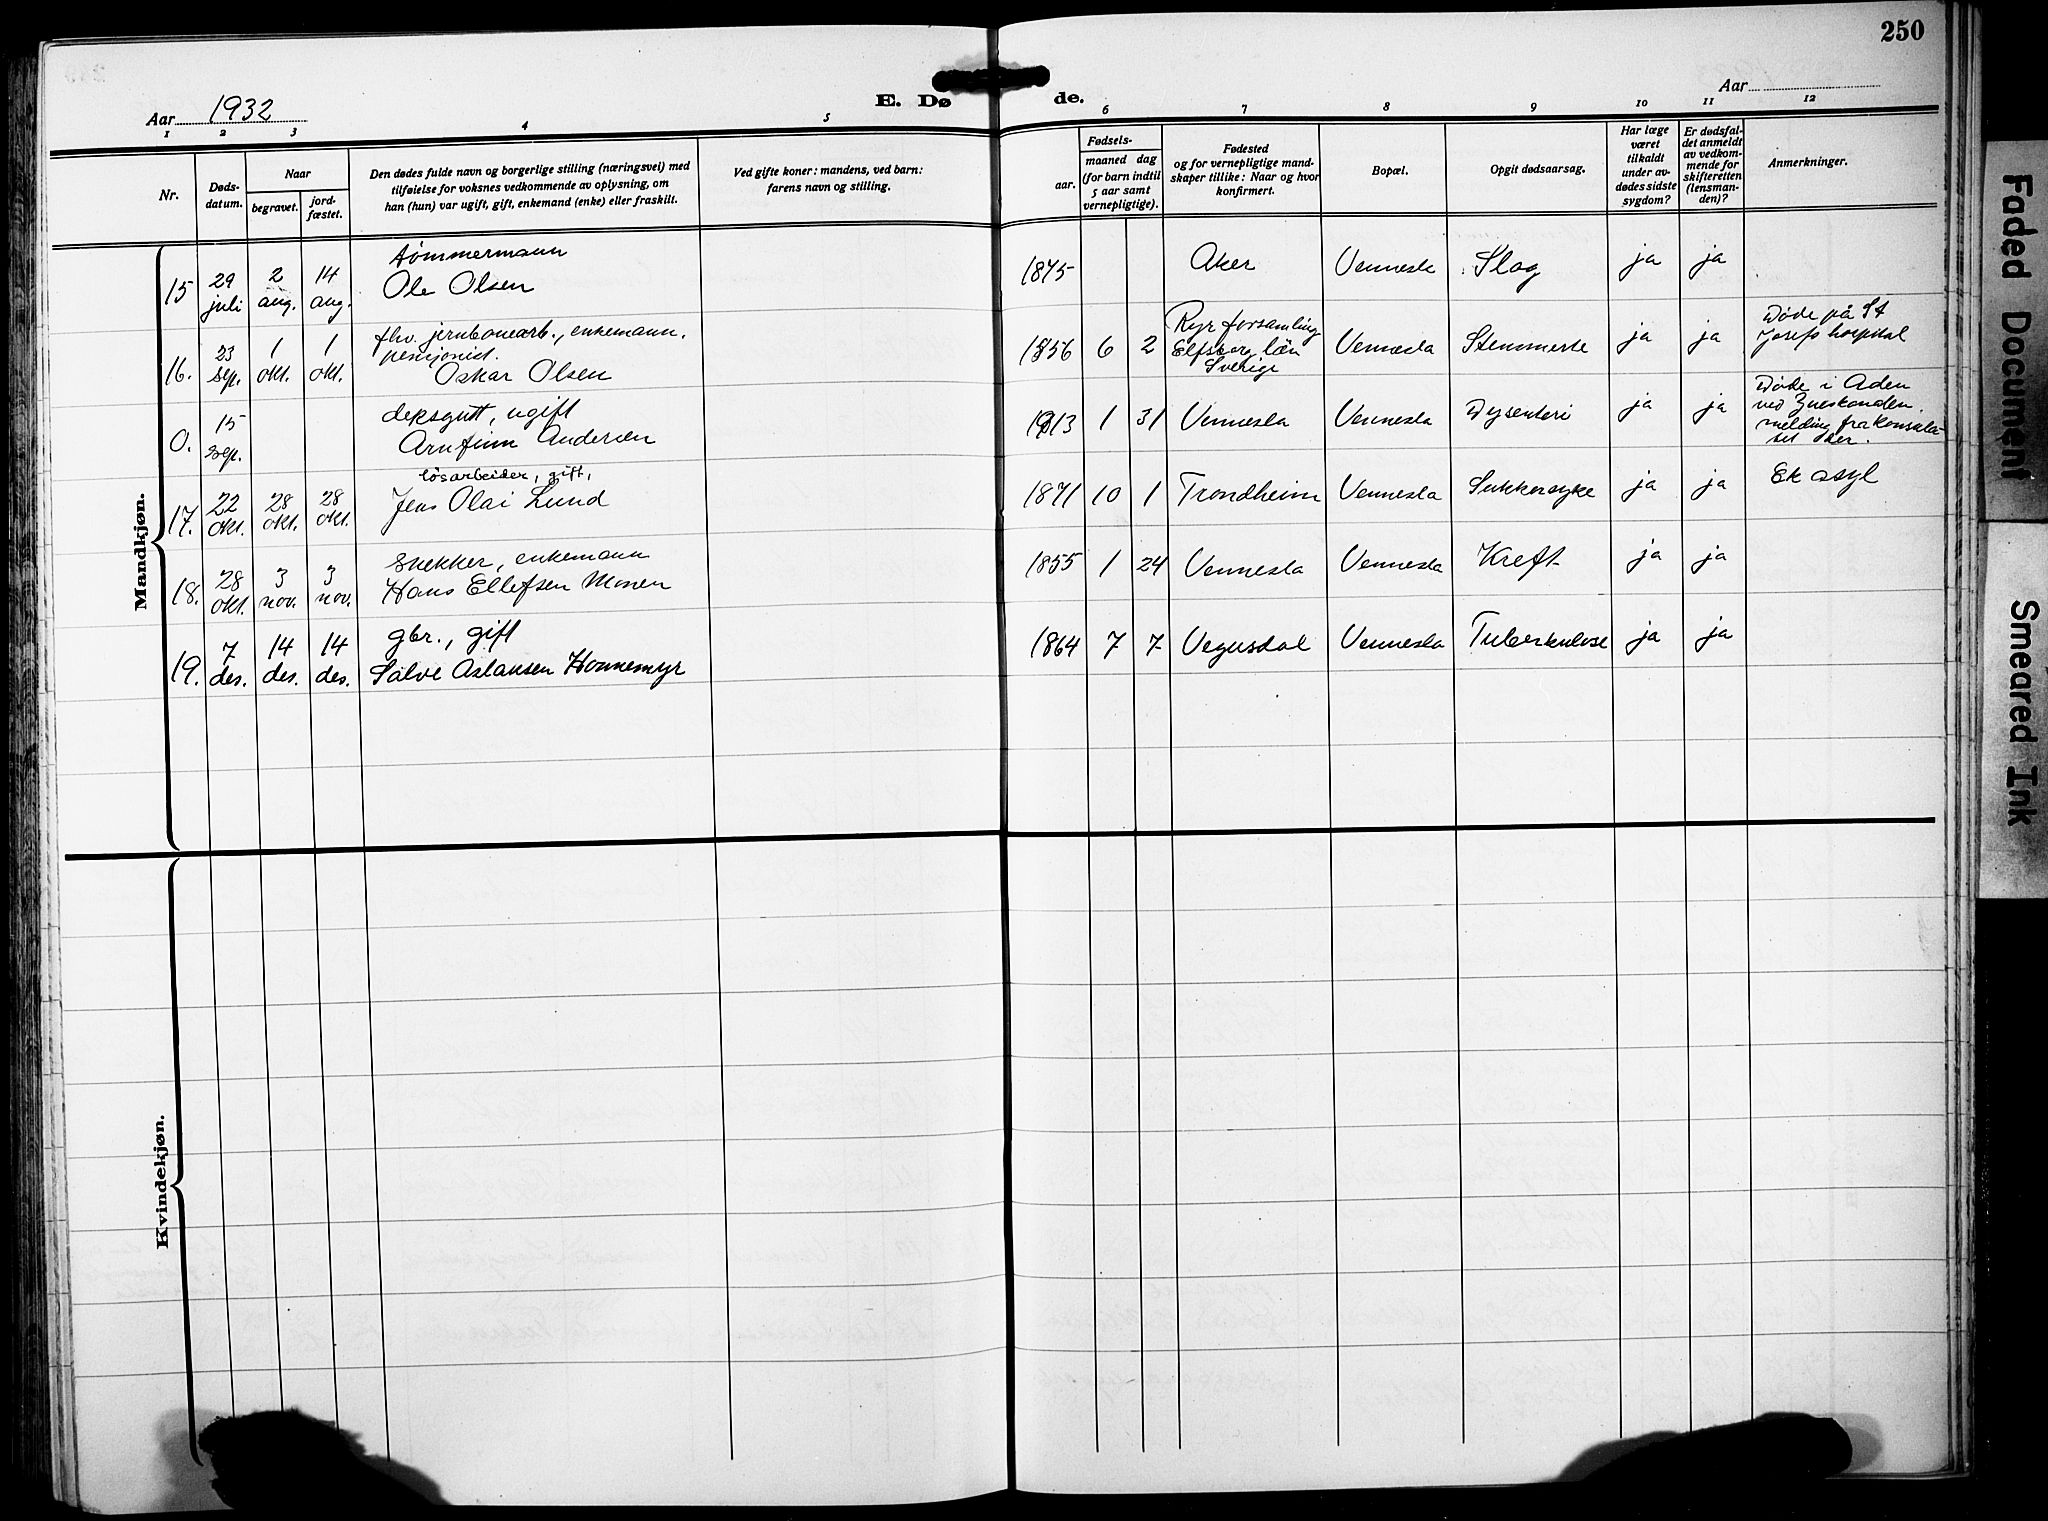 250
Aar 1932
E. Dø de.
Aar
1 2 3 4 5 6 7 8 9 10 11 12
Nr.
Døds-
datum.
Naar
begravet.
jord-
fæstet.
Den dødes fulde navn og borgerlige stilling (næringsvei) med
tilføielse for voksnes vedkommende av oplysning, om
han (hun) var ugift, gift, enkemand (enke) eller fraskilt.
Ved gifte koner: mandens, ved barn:
farens navn og stilling.
Fødsels-
aar.
maaned dag
(for barn indtil
5 aar samt
vernepligtige).
Fødested
og for vernepligtige mand-
skaper tillike: Naar og hvor
konfirmert.
Bopæl.
Opgit dødsaarsag.
Har læge
været
tilkaldt
under av-
dødes sidste
sygdom?
Er dødsfal-
det anmeldt
av vedkom-
mende for
skifteretten
(lensman-
den)?
Anmerkninger.
Mandkjøn.
15 29 juli 2 aug. 14 aug.
tømmermann
Ole Olsen
1875 Aker Vennesla Slag ja ja
16. 23 sep. 1 okt. 1 okt.
fhv. jernbanearb., enkemann,
pensjonist.
Oskar Olsen
1856 6 2
Ryr forsamling
Elfsborg län
Sverige
Vennesla ja ja
Døde på St
Josefs hospital
0. 15 sep.
deksgutt, ugift
Arnfinn Andersen
1913 1 31 Vennesla Vennesla Dysenteri ja ja
Døde i Aden
ved
melding fra konsula-
tet der.
17. 22 okt. 28 okt. 28 okt.
løsarbeider, gift,
Jens Olai Lund
1871 10 1 Trondheim Vennesla Sukkersyke ja ja
Ek asyl
18. 28 okt. 3 nov. 3 nov.
snekker, enkemann
Hans Ellefsen Monen
1855 1 24 Vennesla Vennesla Kreft ja ja
19. 7 des. 14 des. 14 des.
gbr., gift
Salve Aslaksen Honnemyr
1864 7 7 Vegusdal Vennesla Tuberkulose ja ja
Kvindekjøn.
Faded Document
Smeared Ink